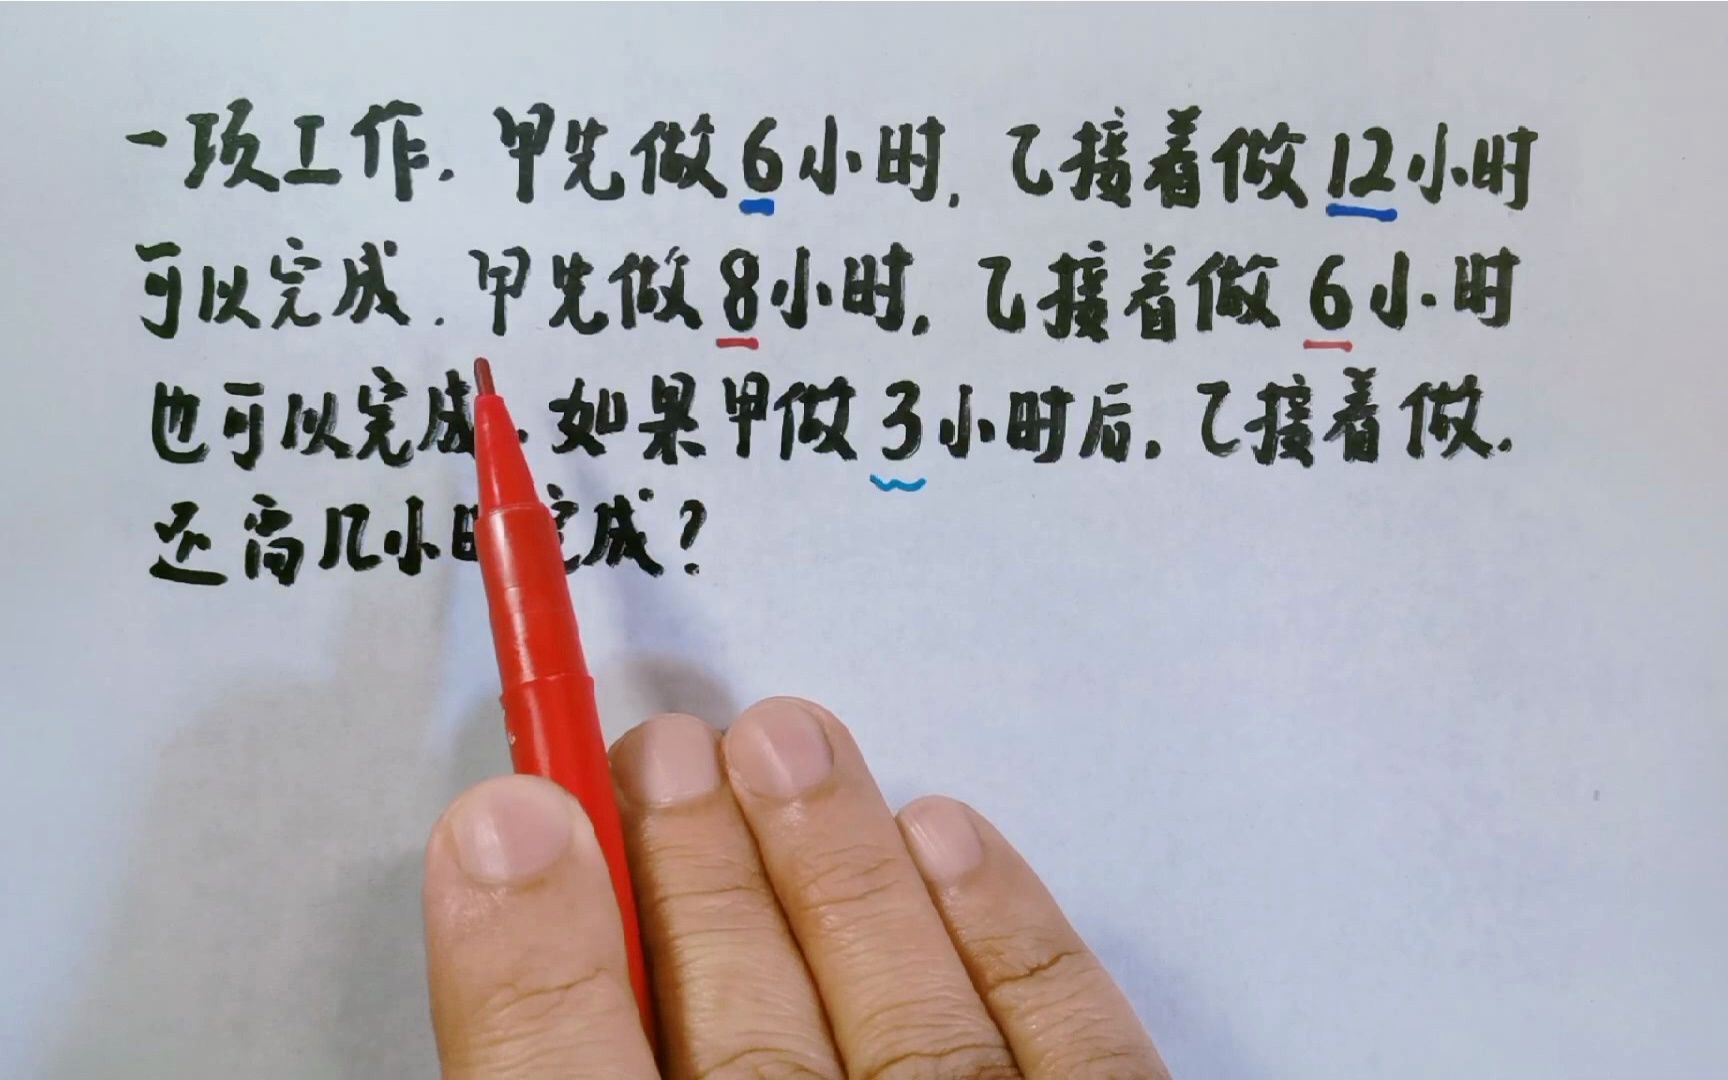 一项工作.甲先做6小时,乙接着做12小时
可以完成.甲先做8小时,乙接着做6小时
也可以完成.如果甲做3小时后.乙接着做.
还需几小时完成?